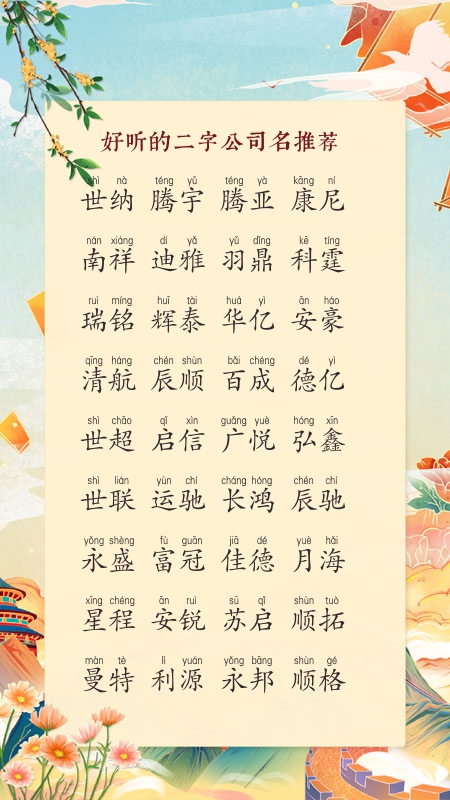 好听的二字公司名推荐
shì nà téng yǔ téng yà kāng ní
世纳 腾宇 腾亚 康尼
nán xiáng dí yǎ yǔ dǐng kē tíng
南祥 迪雅 羽鼎 科霆
ruì míng huī tài huá yì ān háo
瑞铭 辉泰 华亿 安豪
qīng háng chén shùn bǎi chéng dé yì
清航 辰顺 百成 德亿
shì chāo qǐ xìn guǎng yuè hóng xīn
世超 启信 广悦 弘鑫
shì lián yùn chí cháng hóng chén chí
世联 运驰 长鸿 辰驰
yǒng shèng fù guān jiā dé yuè hǎi
永盛 富冠 佳德 月海
xīng chéng ān ruì sū qǐ shùn tuò
星程 安锐 苏启 顺拓
màn tè lì yuán yǒng bāng shùn gé
曼特 利源 永邦 顺格